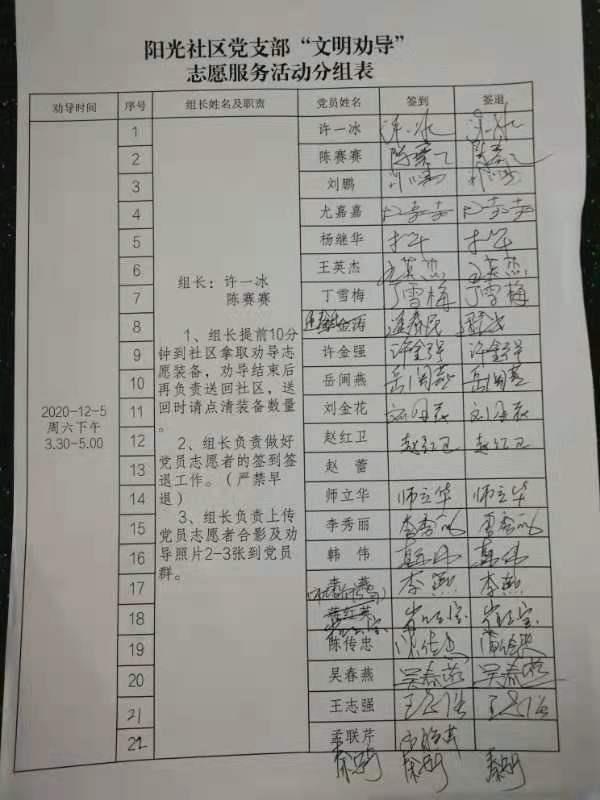 阳光社区党支部“文明劝导”
志愿服务活动分组表
劝导时间 序号 组长姓名及职责 党员姓名 签到 签退
2020-12-5
周六下午
3.30-5.00
组长：许一冰
陈赛赛
1、组长提前10分
钟到社区拿取劝导志
愿装备，劝导结束后
再负责送回社区，送
回时请点清装备数量
。
2、组长负责做好
党员志愿者的签到签
退工作。（严禁早
退）
3、组长负责上传
党员志愿者合影及劝
导照片2-3张到党员
群。
1 许一冰 许一冰 许一冰
2 陈赛赛 陈赛 陈赛
3 刘鹏
4 尤嘉嘉
5 杨继华
6 王英杰 王英杰 王英杰
7 丁雪梅 丁雪梅 丁雪梅
8 金涛
9 许金强 许金强 许金强
10 岳闽燕 岳闽燕 岳闽燕
11 刘金花
12 赵红卫 赵红卫 赵红卫
13 赵 蕾
14 师立华 师立华 师立华
15 李秀丽 李秀丽 李秀丽
16 韩 伟 韩伟 韩伟
17 李燕 李燕
18
19 陈传忠
20 吴春燕 吴春燕 吴春燕
21 王志强 王志强 王志强
22 孟联芹